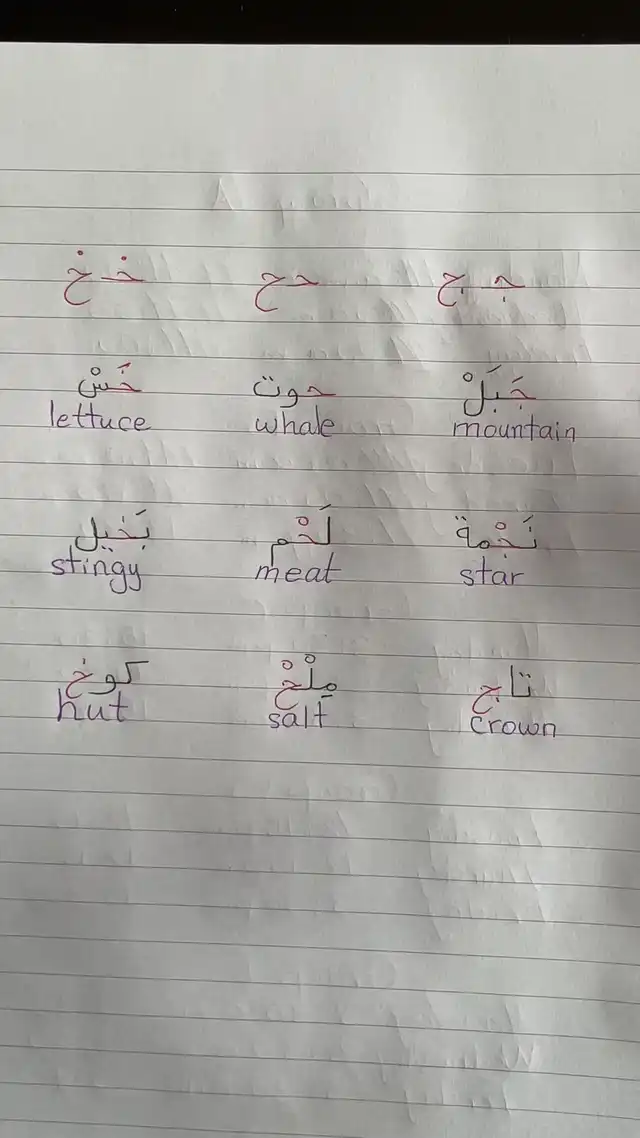 جـ ج حـ ح خـ خ
جَبَلْ حوت خَسْ
lettuce whale mountain
نَجْمة لَحْم بَخيل
stingy meat star
تاج مِلْحْ كوخ
hut salt crown